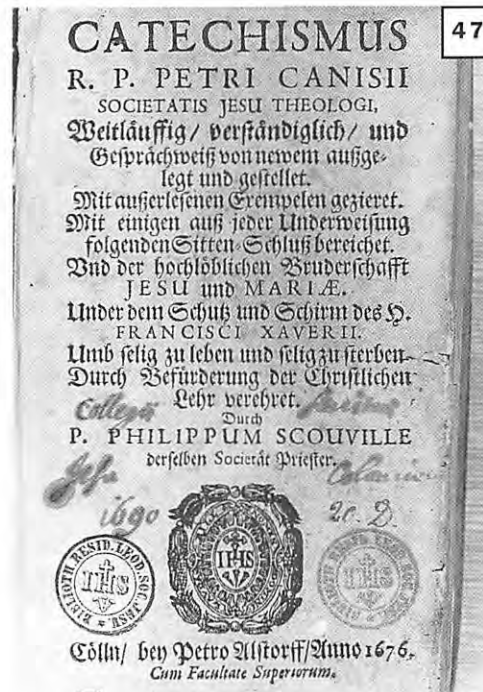 47
CATECHISMUS
R. P. PETRI CANISII
SOCIETATIS JESU THEOLOGI,
Weitläuffig/ verständiglich/ und
Gesprächweiß von newem außge-
legt und gestellet.
Mit außerlesenen Exempelen gezieret.
Mit einigen auß jeder Underweisung
folgenden Sitten-Schluß bereichet.
Vnd der hochlöblichen Bruderschafft
JESU und MARIÆ.
Under dem Schutz und Schirm des H.
FRANCISCI XAVERII.
Umb selig zu leben und selig zu sterben.
Durch Befürderung der Christlichen
Lehr verehret.
Collegii
Durch
P. PHILIPPUM SCOUVILLE
derselben Societät Priester.
Jesu
1690
20. D.
BIBLIOTH. RESID. LEOD. SOC. JESU
IHS
IHS
BIBLIOTH. RESID. LEOD. SOC. JESU
IHS
Cölln/ bey Petro Alstorff/ Anno 1676.
Cum Facultate Superiorum.